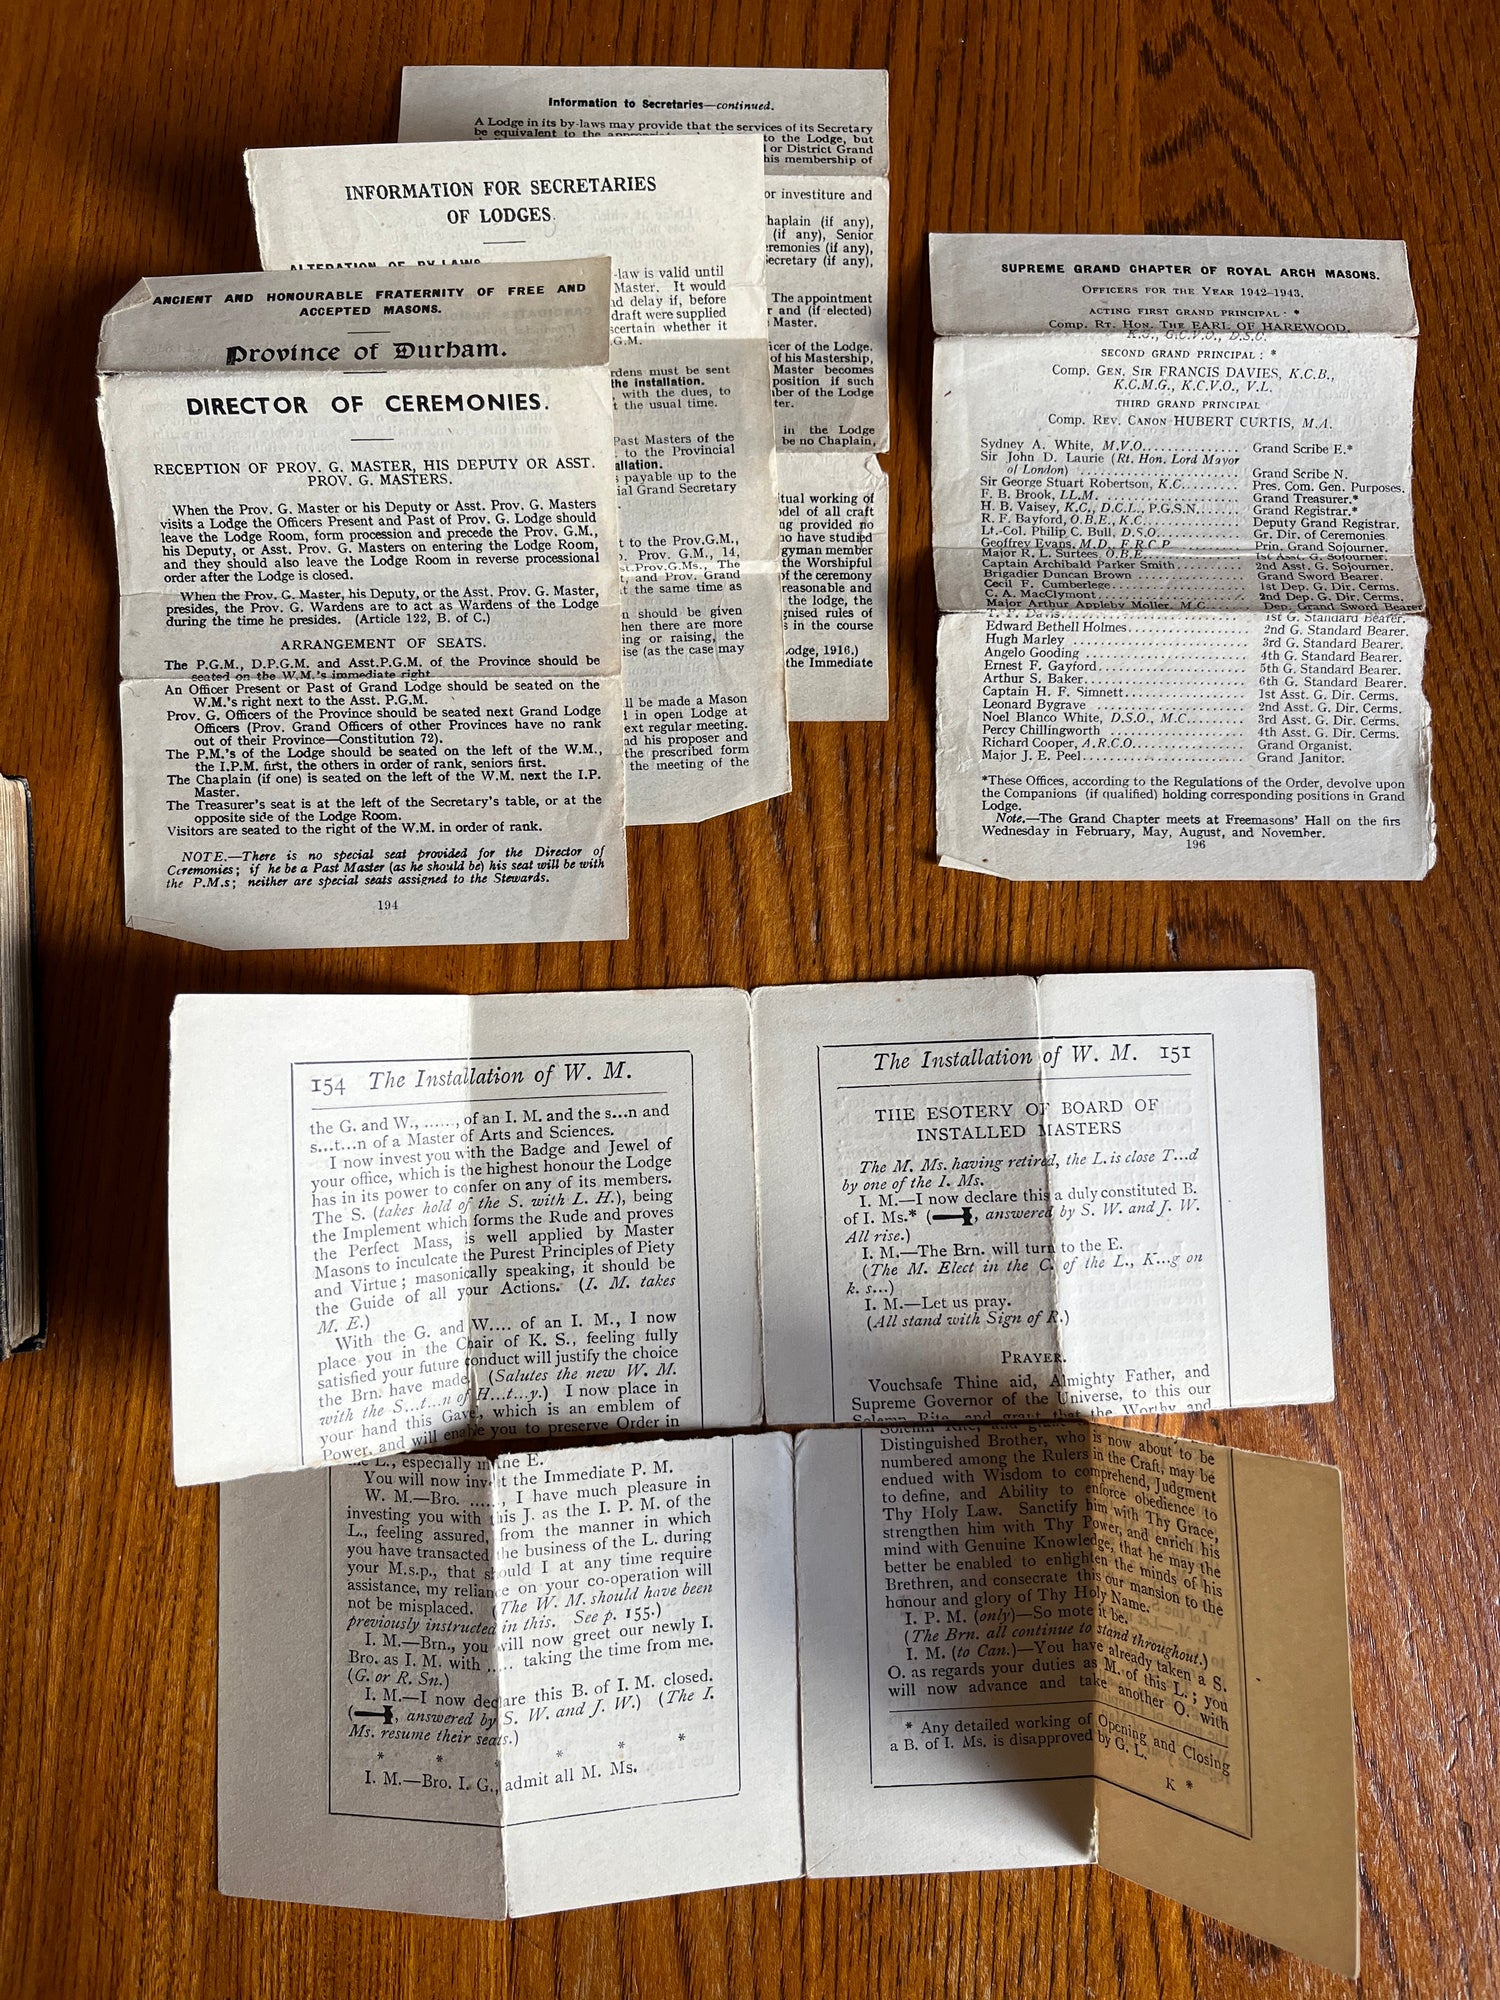 Information to Secretaries—continued.
A Lodge in its by-laws may provide that the services of its Secretary
be equivalent to the
to the Lodge, but
l or District Grand
his membership of
or investiture and
haplain (if any),
(if any), Senior
eremonies (if any),
Secretary (if any),
The appointment
r and (if elected)
Master.
icer of the Lodge.
of his Mastership,
Master becomes
position if such
ber of the Lodge
ter.
in the Lodge
be no Chaplain,
itual working of
del of all craft
ng provided no
ho have studied
gyman member
the Worshipful
of the ceremony
reasonable and
the lodge, the
gnised rules of
s in the course
odge, 1916.)
the Immediate
INFORMATION FOR SECRETARIES
OF LODGES.
ALTERATION OF BY-LAWS
-law is valid until
Master. It would
d delay if, before
draft were supplied
scertain whether it
.G.M.
rdens must be sent
the installation.
with the dues, to
t the usual time.
Past Masters of the
to the Provincial
allation.
s payable up to the
ial Grand Secretary
t to the Prov.G.M.,
. Prov. G.M., 14,
st.Prov.G.Ms., The
t, and Prov. Grand
t the same time as
n should be given
hen there are more
ing or raising, the
ise (as the case may
ll be made a Mason
d in open Lodge at
ext regular meeting.
nd his proposer and
the prescribed form
the meeting of the
ANCIENT AND HONOURABLE FRATERNITY OF FREE AND
ACCEPTED MASONS.
Province of Durham.
DIRECTOR OF CEREMONIES.
RECEPTION OF PROV. G. MASTER, HIS DEPUTY OR ASST.
PROV. G. MASTERS.
When the Prov. G. Master or his Deputy or Asst. Prov. G. Masters
visits a Lodge the Officers Present and Past of Prov. G. Lodge should
leave the Lodge Room, form procession and precede the Prov. G.M.,
his Deputy, or Asst. Prov. G. Masters on entering the Lodge Room,
and they should also leave the Lodge Room in reverse processional
order after the Lodge is closed.
When the Prov. G. Master, his Deputy, or the Asst. Prov. G. Master,
presides, the Prov. G. Wardens are to act as Wardens of the Lodge
during the time he presides. (Article 122, B. of C.)
ARRANGEMENT OF SEATS.
The P.G.M., D.P.G.M. and Asst.P.G.M. of the Province should be
seated on the W.M.'s immediate right.
An Officer Present or Past of Grand Lodge should be seated on the
W.M.'s right next to the Asst. P.G.M.
Prov. G. Officers of the Province should be seated next Grand Lodge
Officers (Prov. Grand Officers of other Provinces have no rank
out of their Province—Constitution 72).
The P.M.'s of the Lodge should be seated on the left of the W.M.,
the I.P.M. first, the others in order of rank, seniors first.
The Chaplain (if one) is seated on the left of the W.M. next the I.P.
Master.
The Treasurer's seat is at the left of the Secretary's table, or at the
opposite side of the Lodge Room.
Visitors are seated to the right of the W.M. in order of rank.
NOTE.—There is no special seat provided for the Director of
Ceremonies; if he be a Past Master (as he should be) his seat will be with
the P.M.s; neither are special seats assigned to the Stewards.
194
SUPREME GRAND CHAPTER OF ROYAL ARCH MASONS.
OFFICERS FOR THE YEAR 1942-1943.
ACTING FIRST GRAND PRINCIPAL: *
Comp. RT. HON. THE EARL OF HAREWOOD,
K.G., G.C.V.O., D.S.O.
SECOND GRAND PRINCIPAL: *
Comp. GEN. SIR FRANCIS DAVIES, K.C.B.,
K.C.M.G., K.C.V.O., V.L.
THIRD GRAND PRINCIPAL
Comp. REV. CANON HUBERT CURTIS, M.A.
Sydney A. White, M.V.O. Grand Scribe E.*
Sir John D. Laurie (Rt. Hon. Lord Mayor
of London) Grand Scribe N.
Sir George Stuart Robertson, K.C. Pres. Com. Gen. Purposes.
F. B. Brook, LL.M. Grand Treasurer.*
H. B. Vaisey, K.C., D.C.L., P.G.S.N. Grand Registrar.*
R. F. Bayford, O.B.E., K.C. Deputy Grand Registrar.
Lt.-Col. Philip C. Bull, D.S.O. Gr. Dir. of Ceremonies
Geoffrey Evans, M.D., F.R.C.P. Prin. Grand Sojourner.
Major R. L. Surtees, O.B.E. 1st Asst. G. Sojourner.
Captain Archibald Parker Smith 2nd Asst. G. Sojourner.
Brigadier Duncan Brown Grand Sword Bearer.
Cecil F. Cumberlege 1st Dep. G. Dir. Cerms.
C. A. MacClymont 2nd Dep. G. Dir. Cerms.
Major Arthur Appleby Moller, M.C. Dep. Grand Sword Bearer
Davis 1st G. Standard Bearer.
Edward Bethell Holmes 2nd G. Standard Bearer.
Hugh Marley 3rd G. Standard Bearer.
Angelo Gooding 4th G. Standard Bearer.
Ernest F. Gayford 5th G. Standard Bearer.
Arthur S. Baker 6th G. Standard Bearer.
Captain H. F. Simnett 1st Asst. G. Dir. Cerms.
Leonard Bygrave 2nd Asst. G. Dir. Cerms.
Noel Blanco White, D.S.O., M.C. 3rd Asst. G. Dir. Cerms.
Percy Chillingworth 4th Asst. G. Dir. Cerms.
Richard Cooper, A.R.C.O. Grand Organist.
Major J. E. Peel Grand Janitor.
*These Offices, according to the Regulations of the Order, devolve upon
the Companions (if qualified) holding corresponding positions in Grand
Lodge.
Note.—The Grand Chapter meets at Freemasons' Hall on the firs
Wednesday in February, May, August, and November.
196
154 The Installation of W. M.
the G. and W., ......, of an I. M. and the s...n and
s...t...n of a Master of Arts and Sciences.
I now invest you with the Badge and Jewel of
your office, which is the highest honour the Lodge
has in its power to confer on any of its members.
The S. (takes hold of the S. with L. H.), being
the Implement which forms the Rude and proves
the Perfect Mass, is well applied by Master
Masons to inculcate the Purest Principles of Piety
and Virtue; masonically speaking, it should be
the Guide of all your Actions. (I. M. takes
M. E.)
With the G. and W.... of an I. M., I now
place you in the Chair of K. S., feeling fully
satisfied your future conduct will justify the choice
the Brn. have made. (Salutes the new W. M.
with the S...t...n of H...t...y.) I now place in
your hand this Gavel, which is an emblem of
Power, and will enable you to preserve Order in
the L., especially in the E.
You will now invest the Immediate P. M.
W. M.—Bro. ....., I have much pleasure in
investing you with this J. as the I. P. M. of the
L., feeling assured, from the manner in which
you have transacted the business of the L. during
your M.s.p., that should I at any time require
assistance, my reliance on your co-operation will
not be misplaced. (The W. M. should have been
previously instructed in this. See p. 155.)
I. M.—Brn., you will now greet our newly I.
Bro. as I. M. with ..... taking the time from me.
(G. or R. Sn.)
I. M.—I now declare this B. of I. M. closed.
(, answered by S. W. and J. W.) (The I.
Ms. resume their seats.)
* * * * *
I. M.—Bro. I. G., admit all M. Ms.
The Installation of W. M. 151
THE ESOTERY OF BOARD OF
INSTALLED MASTERS
The M. Ms. having retired, the L. is close T...d
by one of the I. Ms.
I. M.—I now declare this a duly constituted B.
of I. Ms.* (, answered by S. W. and J. W.
All rise.)
I. M.—The Brn. will turn to the E.
(The M. Elect in the C. of the L., K...g on
k. s...)
I. M.—Let us pray.
(All stand with Sign of R.)
PRAYER.
Vouchsafe Thine aid, Almighty Father, and
Supreme Governor of the Universe, to this our
Solemn Rite, and grant that the Worthy and
Distinguished Brother, who is now about to be
numbered among the Rulers in the Craft, may be
endued with Wisdom to comprehend, Judgment
to define, and Ability to enforce obedience to
Thy Holy Law. Sanctify him with Thy Grace,
strengthen him with Thy Power, and enrich his
mind with Genuine Knowledge, that he may the
better be enabled to enlighten the minds of his
Brethren, and consecrate this our mansion to the
honour and glory of Thy Holy Name.
I. P. M. (only)—So mote it be.
(The Brn. all continue to stand throughout.)
I. M. (to Can.)—You have already taken a S.
O. as regards your duties as M. of this L.; you
will now advance and take another O. with
* Any detailed working of Opening and Closing
a B. of I. Ms. is disapproved by G. L.
K *